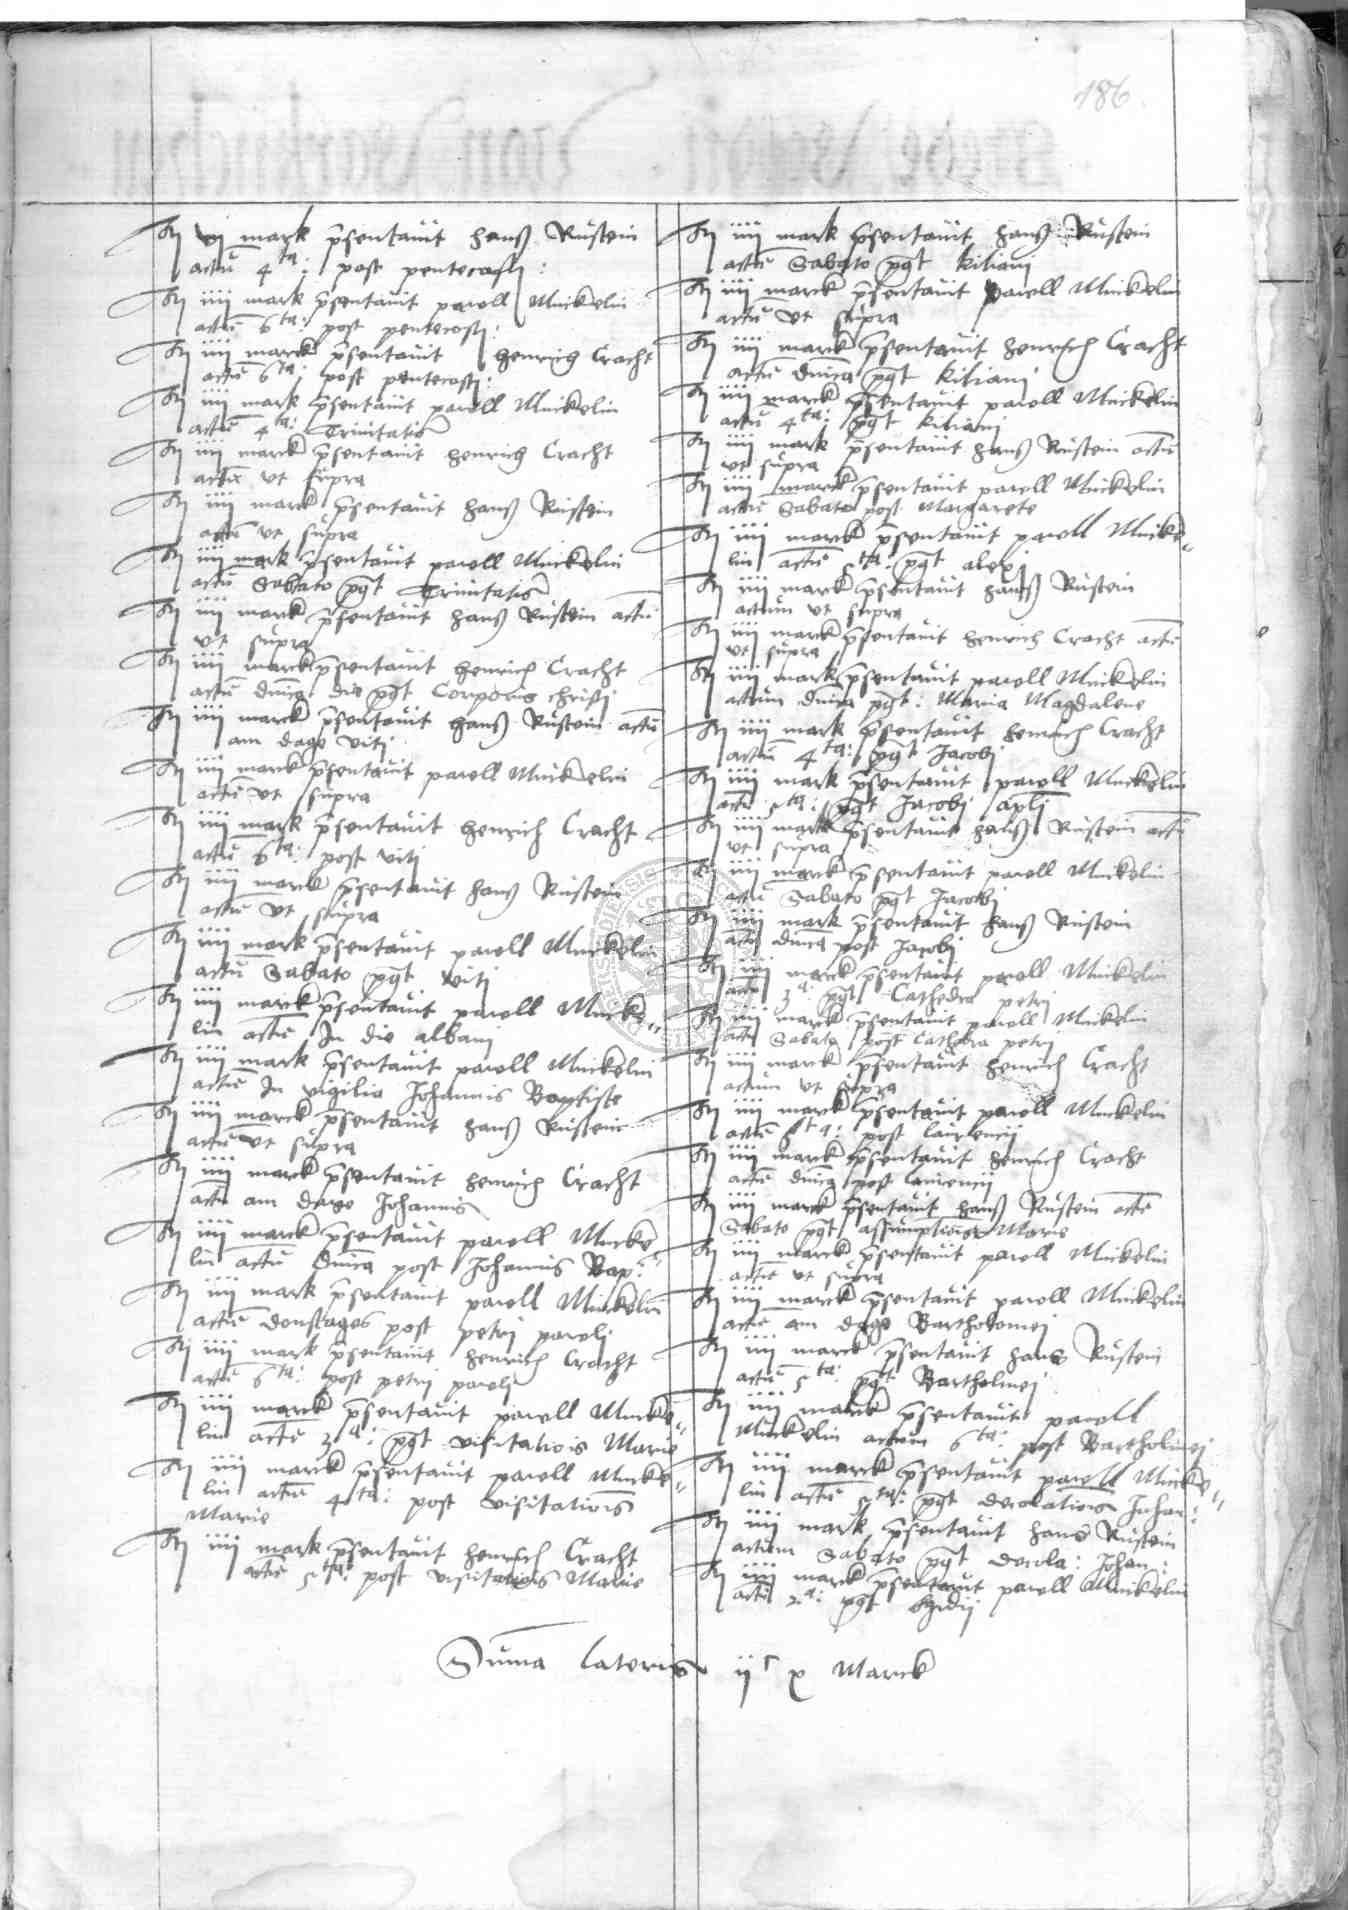 186
It vj mark p̄sentauit hanß Rustein
actū 4ta: post pentecosti:
It iiij mark p̄sentauit pawell Mickelin
actū 6ta: post pentecosti:
It iiij marck p̄sentauit henrich Cracht
actū 6ta: post pentecosti:
It iiij mark p̄sentauit pawell Mickelin
actū 4ta: Trinitatis
It iiij marck p̄sentauit henrich Cracht
actū vt supra
It iiij marck p̄sentauit hanß Rustein
actū vt supra
It iiij mark p̄sentauit pawell Mickelin
actū Sabato pꝰt Trinitatis
It iiij marck p̄sentauit hanß Rustein actū
vt supra
It iiij marck p̄sentauit henrich Cracht
actū dnīca die pꝰt Corporis christj
It iiij marck p̄sentauit hanß Rustein actū
am dage viti
It iiij marck p̄sentauit pawell Mickelin
actū vt supra
It iiij mark p̄sentauit henrich Cracht
actū 6ta: post viti
It iiij marck p̄sentauit hanß Rustein
actū vt supra
It iiij mark p̄sentauit pawell Mickelin
actū Sabato pꝰt viti
It iiij marck p̄sentauit pawell Micke„
lin actū In die albani
It iiij mark p̄sentauit pawell Mickelin
actū In vigilia Johannis Baptiste
It iiij marck p̄sentauit hanß Rustein
actū vt supra
It iiij marck p̄sentauit henrich Cracht
actū am dage Johannis
It iiij marck p̄sentauit pawell Micke„
lin actū dnīca post Johannis Bap:
It iiij mark p̄sentauit pawell Mickelin
actū donstages post petrj pawlj
It iiij mark p̄sentauit henrich Cracht
actū 6ta: post petrj pawlj
It iiij marck p̄sentauit pawell Micke„
lin actū 3a: pꝰt visitatiōis Marie
It iiij marck p̄sentauit pawell Micke„
lin actū 4ta: post visitatiōis
Marie
It iiij mark p̄sentauit henrich Cracht
actū 5ta: post visitatiōis Marie
It iiij mark p̄sentauit hanß Rustein
actū Sabato pꝰt kiliani
It iiij marck p̄sentauit pawell Mickelin
actū vt supra
It iiij marck p̄sentauit henrich Cracht
actū dnīca pꝰt kiliani
It iiij marck p̄sentauit pawell Mickelin
actū 4ta: pꝰt kiliani
It iiij mark p̄sentauit hanß Rustein actū
vt supra
It iiij marck p̄sentauit pawell Mickelin
actū Sabato post Margarete
It iiij marck p̄sentauit pawell Micke„
lin actū 5ta: pꝰt alexj
It iiij mark p̄sentauit hanß Rustein
actum vt supra
It iiij marck p̄sentauit henrich Cracht actū
vt supra
It iiij mark p̄sentauit pawell Mickelin
actum dnīca pꝰt: Maria Magdalene
It iiij mark p̄sentauit henrich Cracht
actū 4ta: pꝰt Jacobj
It iiij mark p̄sentauit pawell Mickelin
actū 5ta: pꝰt Jacobj aplj
It iiij mark p̄sentauit hanß Rustein actū
vt supra
It iiij marck p̄sentauit pawell Mickelin
actū Sabato pꝰt Jacobj
It iiij mark p̄sentauit hanß Rustein
actū dnīca post Jacobj
It iiij marck p̄sentauit pawell Mickelin
actū 3a: pꝰt Cathedra petrj
It iiij marck p̄sentauit pawell Mickelin
actū Sabato post Cathedra petrj
It iiij marck p̄sentauit henrich Cracht
actum vt supra
It iiij marck p̄sentauit pawell Mickelin
actū 6ta: post laurencij
It iiij marck p̄sentauit henrich Cracht
actū dnīca post laurencij
It iiij marck p̄sentauit hanß Rustein actū
Sabato pꝰt assumptiōis Marie
It iiij marck p̄sentauit pawell Mickelin
actū vt supra
It iiij marck p̄sentauit pawell Mickelin
actū am dage Bartholomej
It iiij marck p̄sentauit hans Rustein
actū 5ta: pꝰt Bartholmej
It iiij marck p̄sentauit pawell
Mickelin actum 6ta: post Bartholmej
It iiij marck p̄sentauit pawell Micke„
lin actū 5ta: pꝰt decolatiōis Johan:
It iiij mark p̄sentauit hans Rustein
actum Sabato pꝰt decola: Johan:
It iiij marck p̄sentauit pawell Mickelin
actū 2a: pꝰt Egidij
Suma lateris ijc x Marck